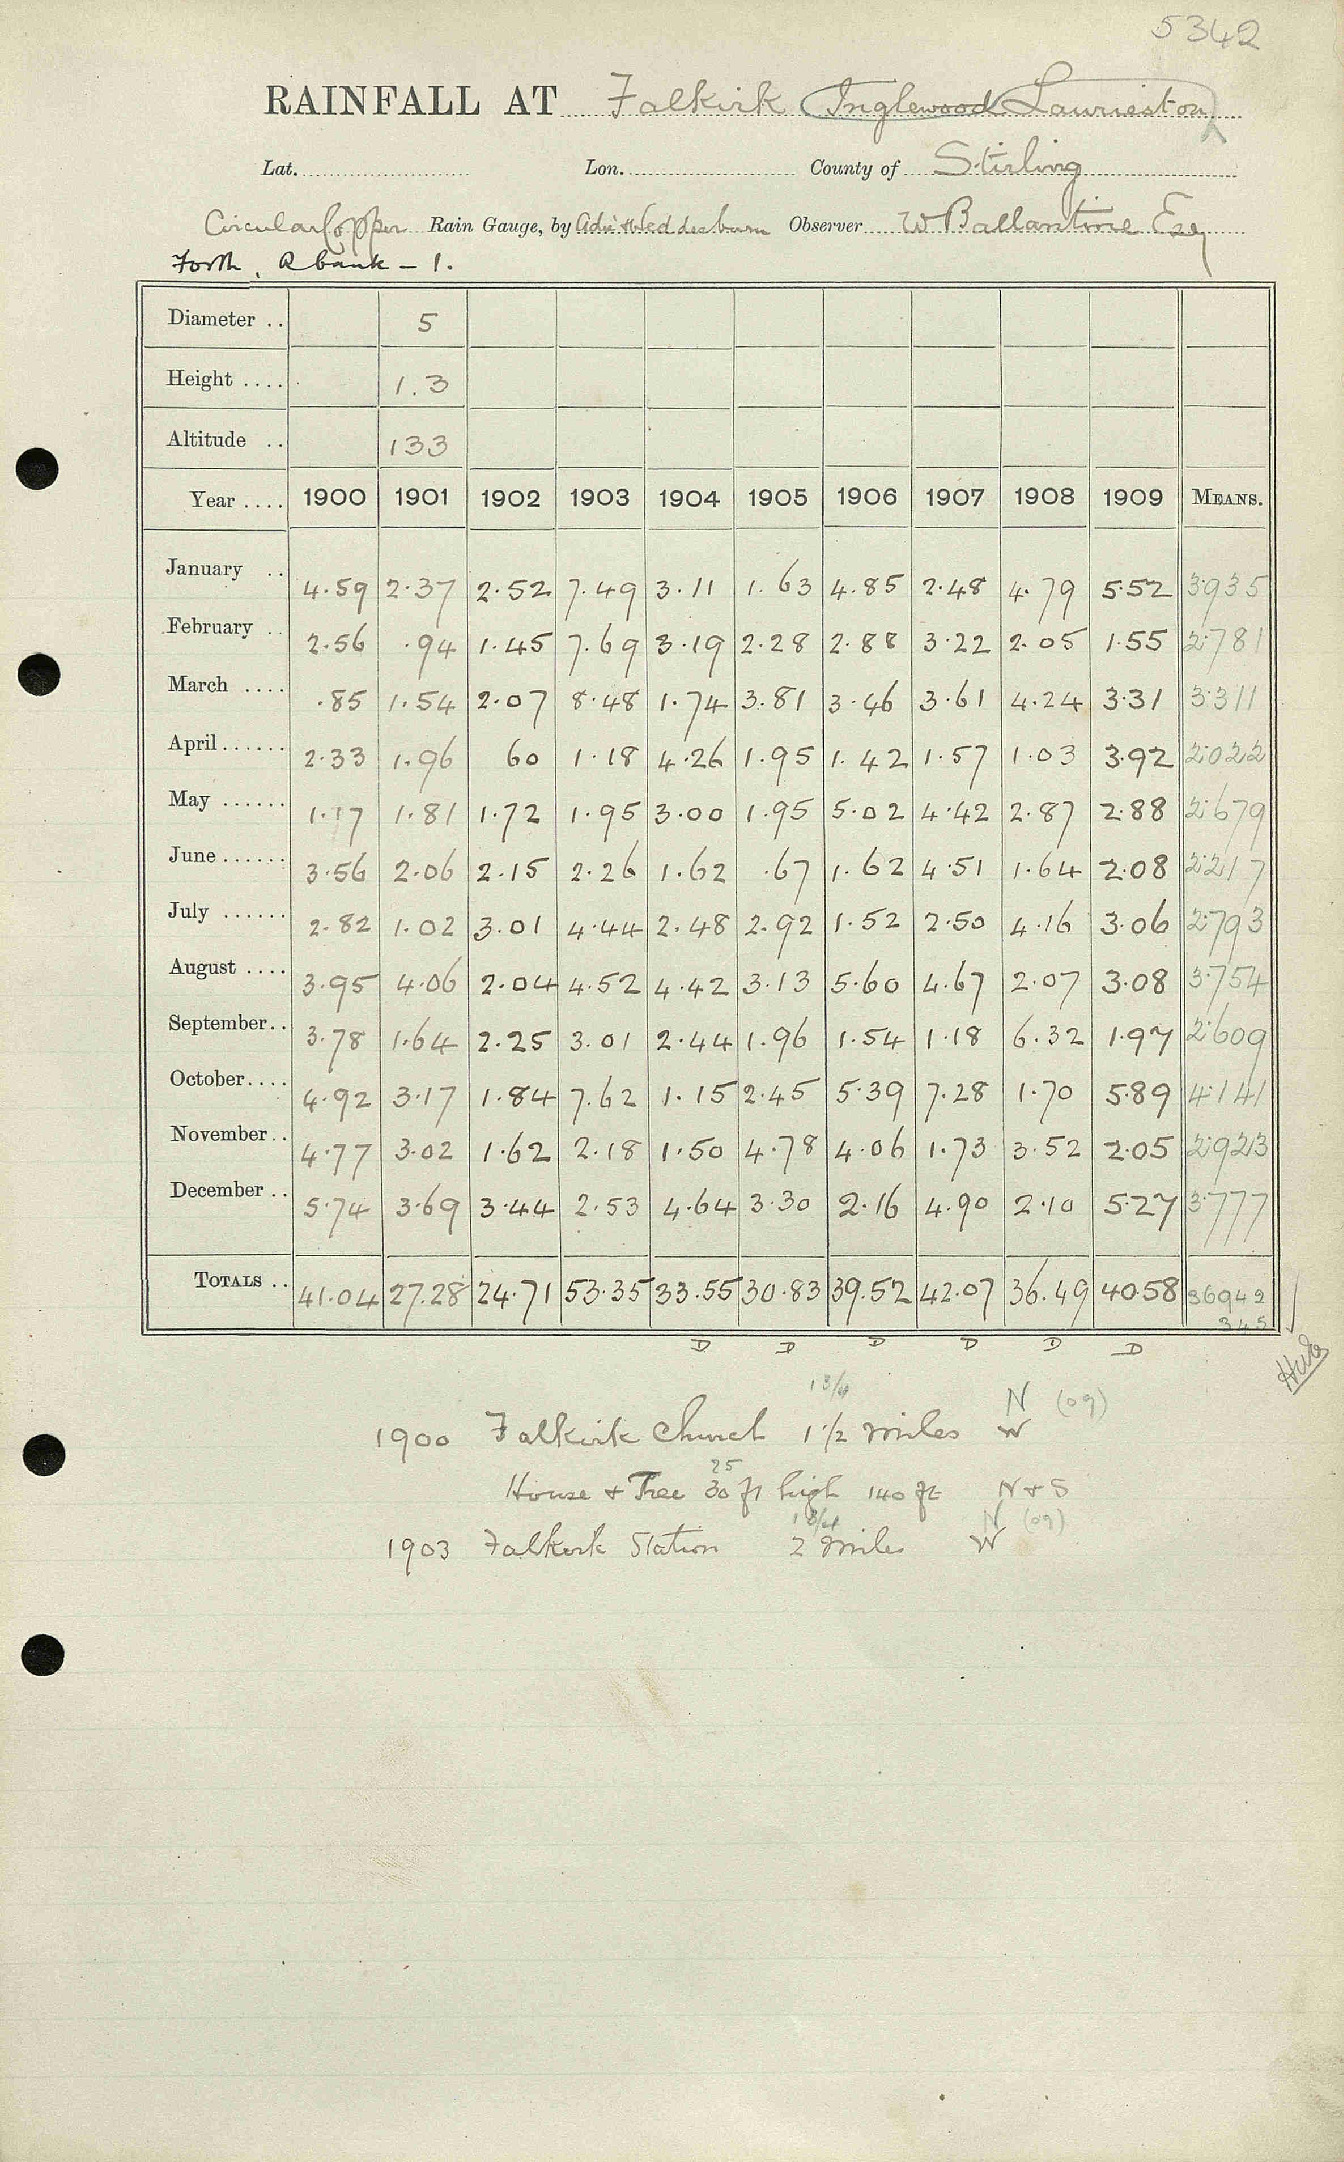 5342
RAINFALL AT Falkirk (Inglewood Laurieston)
Lat. Lon. County of Stirling
Circular Copper Rain Gauge, by Adie & Wedderburn Observer W Ballantine Esq
Forth, R bank - 1.
Diameter .. 5
Height .... 1.3
Altitude .. 133
Year .... 1900 1901 1902 1903 1904 1905 1906 1907 1908 1909 MEANS.
January .. 4.59 2.37 2.52 7.49 3.11 1.63 4.85 2.48 4.79 5.52 3.935
February .. 2.56 .94 1.45 7.69 3.19 2.28 2.88 3.22 2.05 1.55 2.781
March .... .85 1.54 2.07 8.48 1.74 3.81 3.46 3.61 4.24 3.31 3.311
April...... 2.33 1.96 60 1.18 4.26 1.95 1.42 1.57 1.03 3.92 2.022
May ...... 1.17 1.81 1.72 1.95 3.00 1.95 5.02 4.42 2.87 2.88 2.679
June ...... 3.56 2.06 2.15 2.26 1.62 .67 1.62 4.51 1.64 2.08 2.217
July ...... 2.82 1.02 3.01 4.44 2.48 2.92 1.52 2.50 4.16 3.06 2.793
August .... 3.95 4.06 2.04 4.52 4.42 3.13 5.60 4.67 2.07 3.08 3.754
September.. 3.78 1.64 2.25 3.01 2.44 1.96 1.54 1.18 6.32 1.97 2.609
October.... 4.92 3.17 1.84 7.62 1.15 2.45 5.39 7.28 1.70 5.89 4.141
November.. 4.77 3.02 1.62 2.18 1.50 4.78 4.06 1.73 3.52 2.05 2.923
December .. 5.74 3.69 3.44 2.53 4.64 3.30 2.16 4.90 2.10 5.27 3.777
TOTALS .. 41.04 27.28 24.71 53.35 33.55 30.83 39.52 42.07 36.49 40.58 36942
345
D D D D D D
1 3/4 N (09)
1900 Falkirk Church 1 1/2 miles W
25
House & Tree 30 ft high 140 ft N & S
1 3/4 N (09)
1903 Falkirk Station 2 miles W